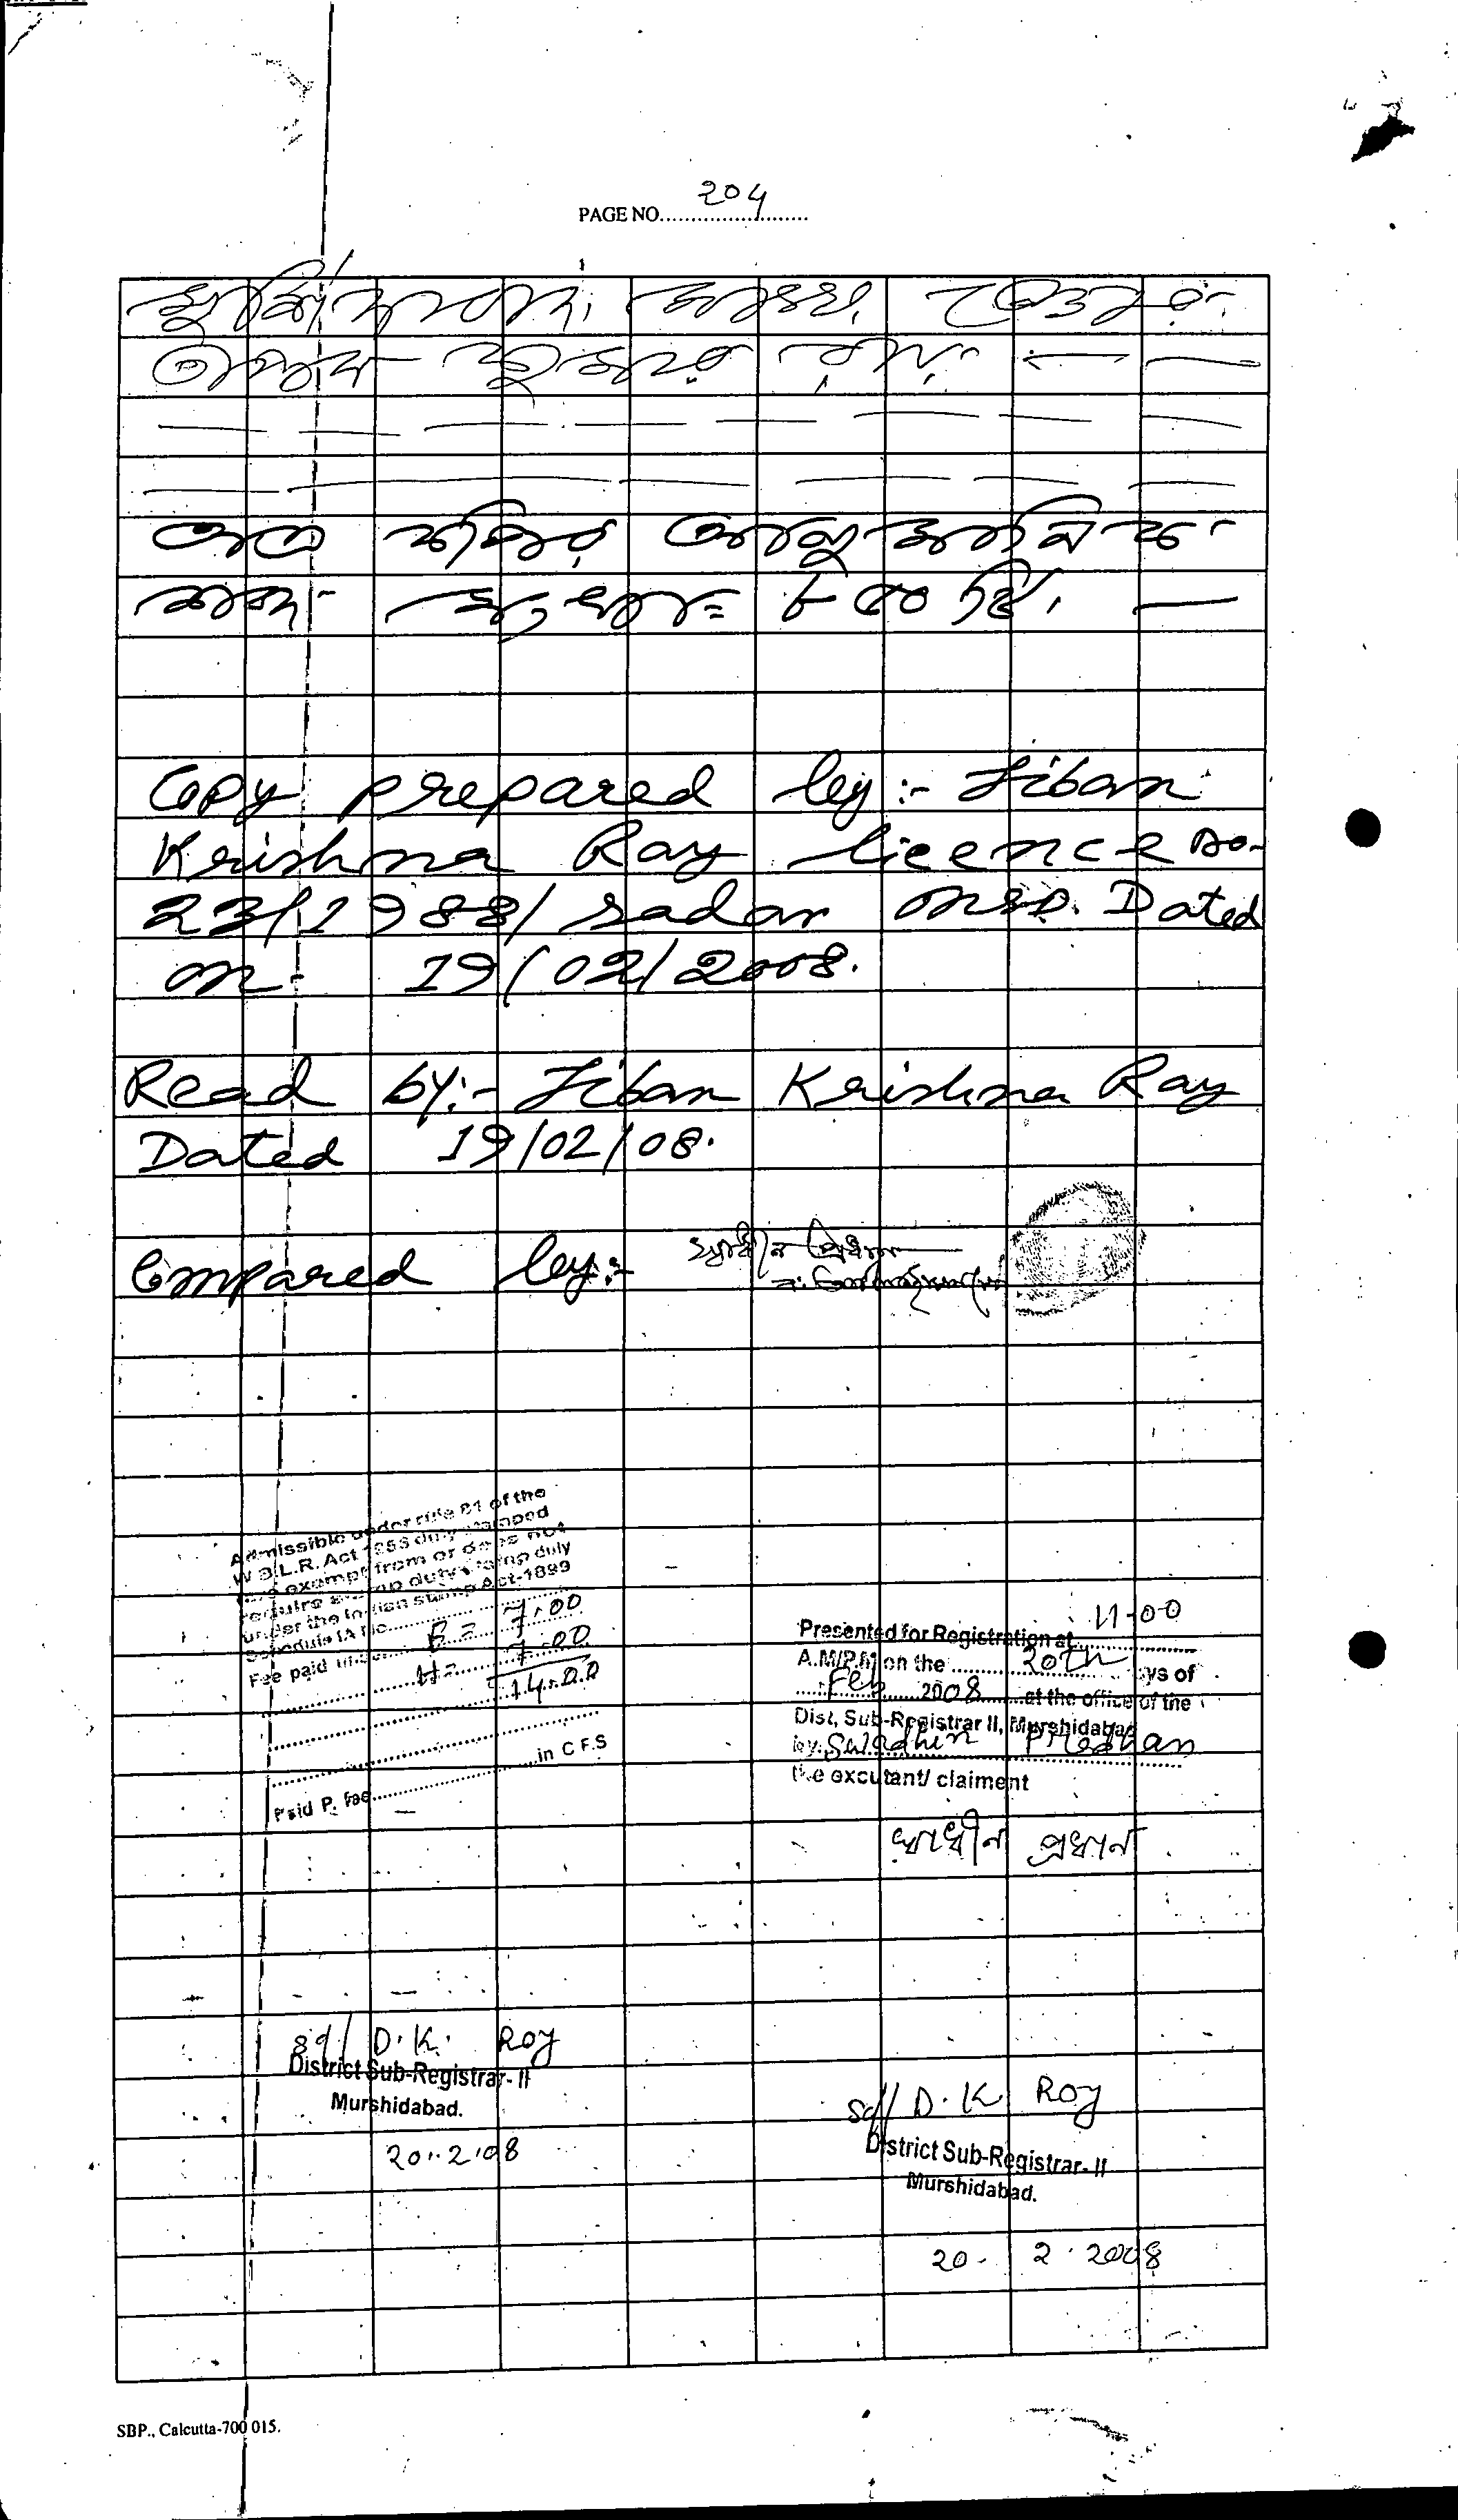 PAGE NO. 204
মুর্শিদাবাদ।
কুমার রায়।
অত্র দলিলের
শব্দ সংখ্যা = ৮৫০ টি। —
Copy prepared by:- Jiban
Krishna Ray licence no-
23/1988/ sadar msd. Dated
on- 19/02/2008.
Read by:- Jiban Krishna Ray
Dated 19/02/08.
Compared by:- স্বাধীন প্রধান
Admissible under rule 21 of the
W.B.L.R. Act 1955 duly stamped
exempt from or does not
require stamp duty stamp duly
under the Indian stamp Act-1899
Schedule IA No.
Fee paid under E = 7.00
H = 7.00
14.00
in C F.S
Paid P. Fee
Presented for Registration at 11-00
A.M/P.M on the 20th ys of
Feb 2008 at the office of the
Dist, Sub-Registrar II, Murshidabad
by Swadhin Pradhan
the excutant/ claiment
স্বাধীন প্রধান
sd/ D. K. Roy
District Sub-Registrar- II
Murshidabad.
20.2.08
sd/ D. K Roy
District Sub-Registrar- II
Murshidabad.
20. 2. 2008
SBP., Calcutta-700 015.